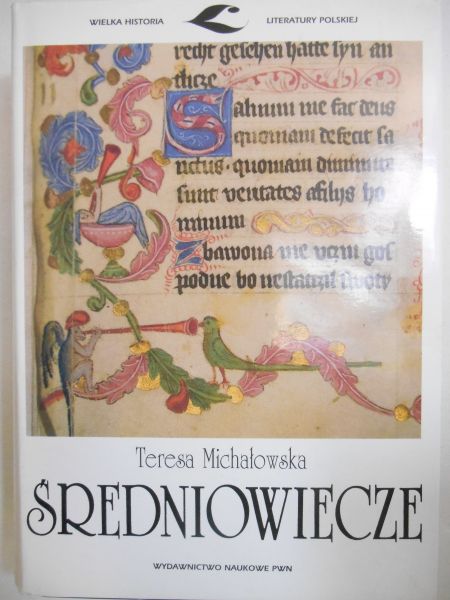 WIELKA HISTORIA LITERATURY POLSKIEJ
recht gesehen hatte syn an
tlicze
Saluum me fac deus
quoniam defecit sa
nctus quoniam diminute
sunt veritates a filys ho
minum
Zbawona me uczni gos
podne bo
Teresa Michałowska
ŚREDNIOWIECZE
WYDAWNICTWO NAUKOWE PWN